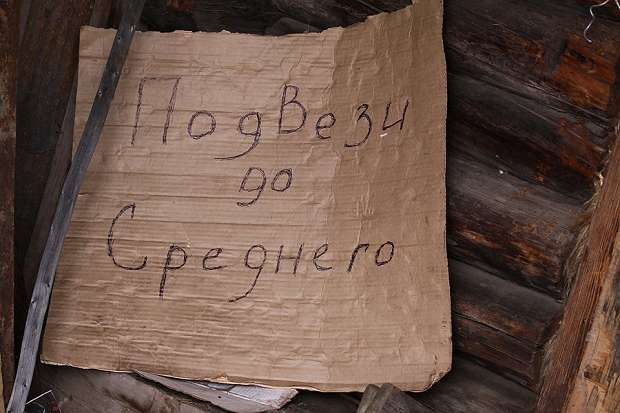 Подвези
до
Среднего